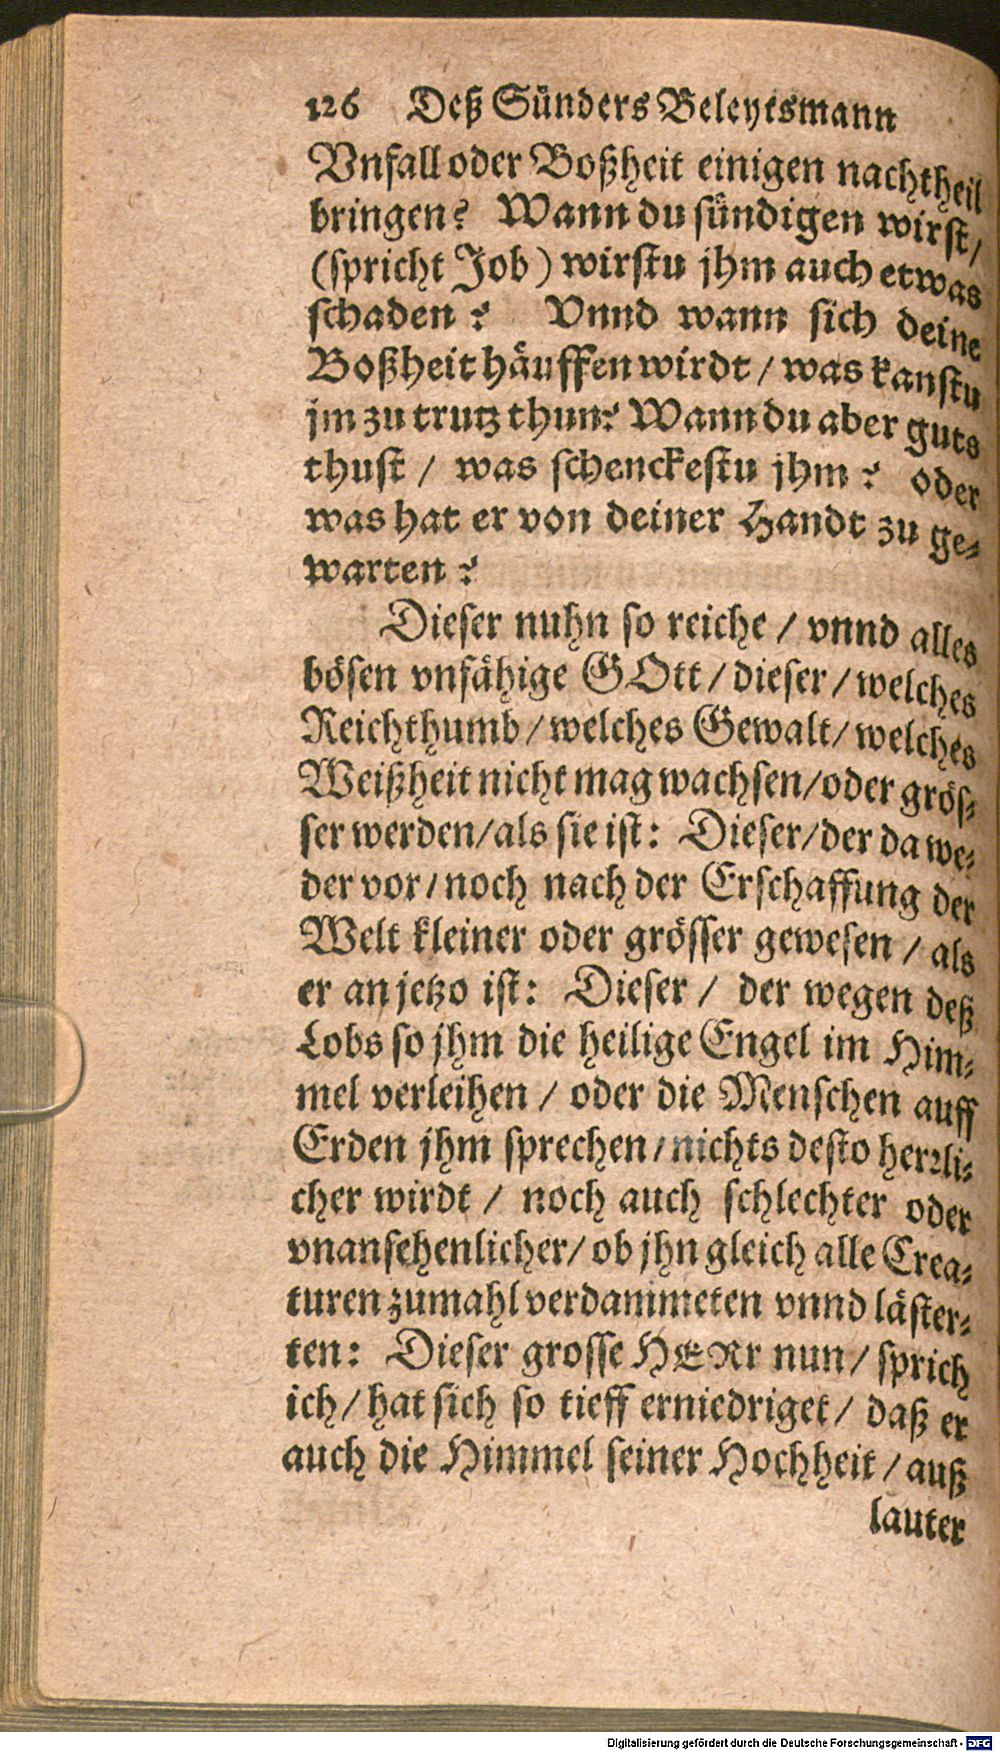 126 Deß Sünders Beleytsmann
Vnfall oder Boßheit einigen nachtheil
bringen? Wann du sündigen wirst/
(spricht Job) wirstu jhm auch etwas
schaden? Vnnd wann sich deine
Boßheit häuffen wirdt / was kanstu
jm zu trutz thun? Wann du aber guts
thust / was schenckestu jhm? oder
was hat er von deiner Handt zu ge-
warten?
Dieser nuhn so reiche / vnnd alles
bösen vnfähige GOtt / dieser / welches
Reichthumb / welches Gewalt / welches
Weißheit nicht mag wachsen/oder grös-
ser werden/als sie ist: Dieser/der da we-
der vor / noch nach der Erschaffung der
Welt kleiner oder grösser gewesen / als
er anjetzo ist: Dieser / der wegen deß
Lobs so jhm die heilige Engel im Him-
mel verleihen / oder die Menschen auff
Erden jhm sprechen / nichts desto herrli-
cher wirdt / noch auch schlechter oder
vnansehenlicher/ ob jhn gleich alle Crea-
turen zumahl verdammeten vnnd läster-
ten: Dieser grosse HERr nun / sprich
ich / hat sich so tieff erniedriget / daß er
auch die Himmel seiner Hochheit / auß
lauter
Digitalisierung gefördert durch die Deutsche Forschungsgemeinschaft - DFG